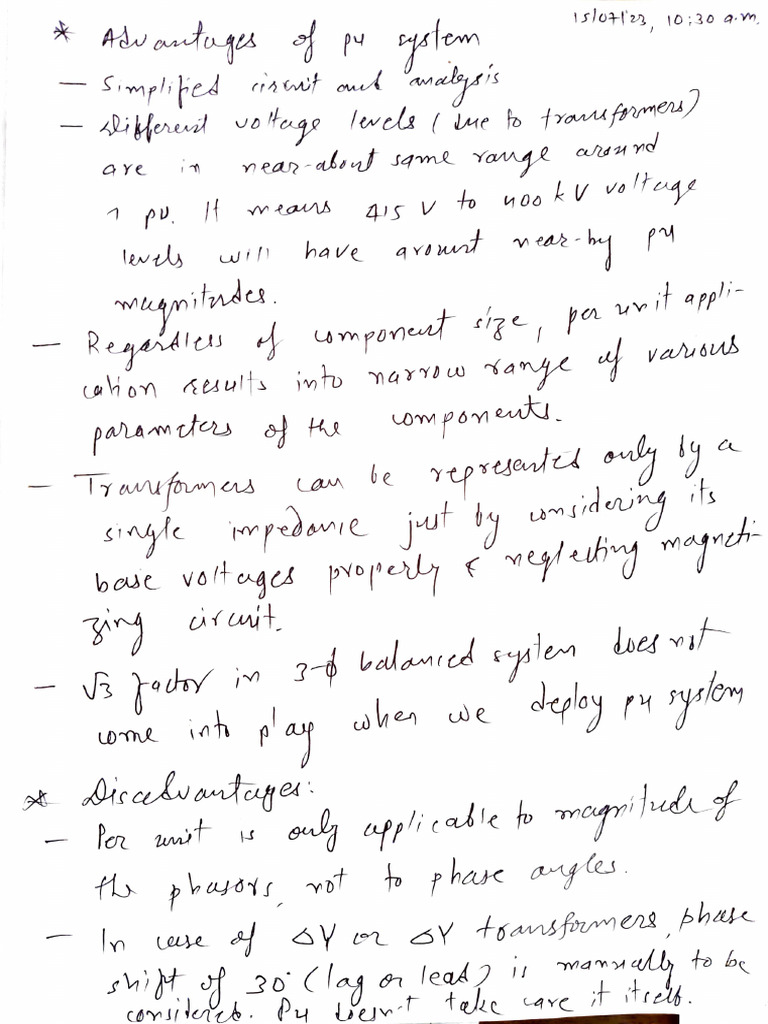 15/07/'23, 10:30 a.m.
* Advantages of pu system
— Simplified circuit and analysis
— Different voltage levels (due to transformers)
are in near-about same range around
1 pu. It means 415 V to 400 kV voltage
levels will have around near-by pu
magnitudes.
— Regardless of component size, per unit appli-
cation results into narrow range of various
parameters of the components.
— Transformers can be represented only by a
single impedance just by considering its
base voltages properly & neglecting magneti-
zing circuit.
— √3 factor in 3-ϕ balanced system does not
come into play when we deploy pu system
* Disadvantages:
— Per unit is only applicable to magnitude of
the phasors, not to phase angles.
— In case of ΔY or ΔY transformers, phase
shift of 30° (lag or lead) is manually to be
considered. Pu doesn't take care it itself.